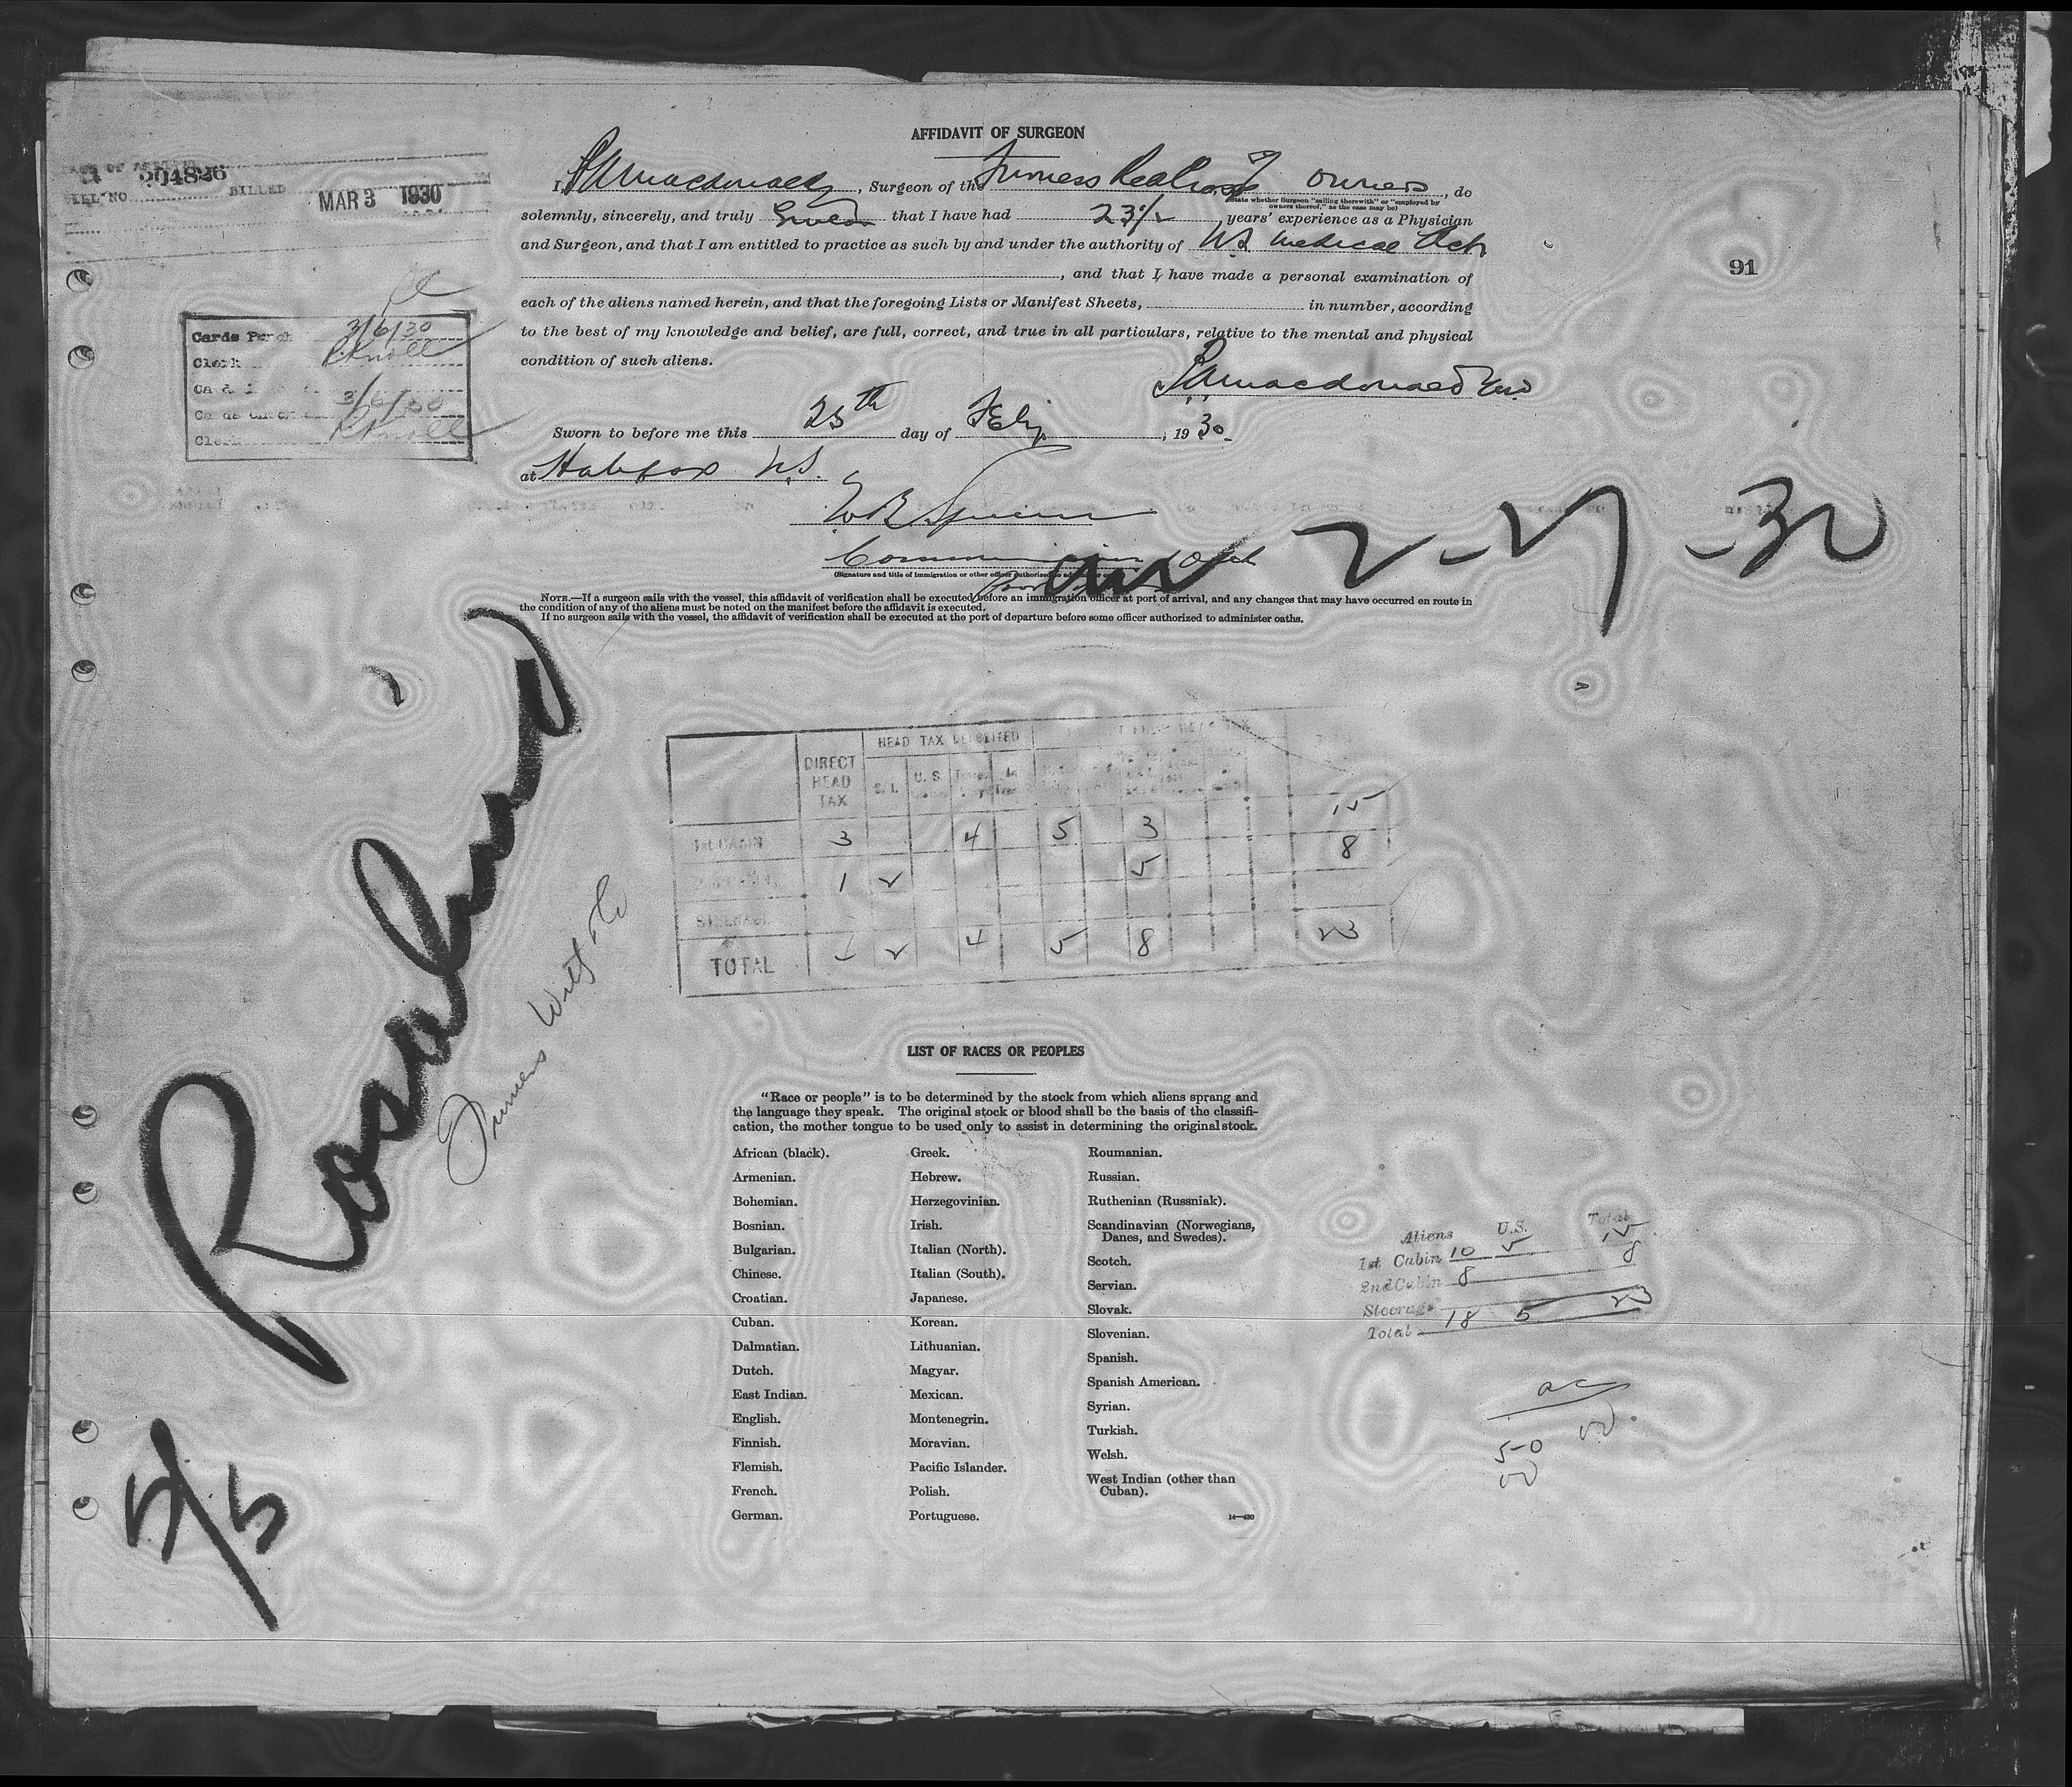 AFFIDAVIT OF SURGEON
I, Macdonald, Surgeon of the Furness Red Cross owners, do
(State whether Surgeon "sailing therewith" or "employed by
owners thereof," as the case may be)
solemnly, sincerely, and truly that I have had 23 1/2 years' experience as a Physician
and Surgeon, and that I am entitled to practice as such by and under the authority of N.S. Medical Act
, and that I have made a personal examination of
each of the aliens named herein, and that the foregoing Lists or Manifest Sheets, in number, according
to the best of my knowledge and belief, are full, correct, and true in all particulars, relative to the mental and physical
condition of such aliens.
Macdonald
Sworn to before me this 25th day of Feby, 1930
at Halifax N.S.
(Signature and title of immigration or other officer authorized to
NOTE.—If a surgeon sails with the vessel, this affidavit of verification shall be executed before an immigration officer at port of arrival, and any changes that may have occurred en route in
the condition of any of the aliens must be noted on the manifest before the affidavit is executed.
If no surgeon sails with the vessel, the affidavit of verification shall be executed at the port of departure before some officer authorized to administer oaths.
BILL NO BILLED MAR 3 1930
Cards Punch 3/6/30
Clerk Knoll
3/6/30
Clerk Knoll
91
2-27-30
Rosalind
Furness
5/5
HEAD TAX
DIRECT
HEAD
TAX
S.I. U.S.
1st CABIN 3 4 5 3 15
1 2 5 8
STEERAGE
TOTAL 4 2 4 5 8 23
LIST OF RACES OR PEOPLES
"Race or people" is to be determined by the stock from which aliens sprang and
the language they speak. The original stock or blood shall be the basis of the classifi-
cation, the mother tongue to be used only to assist in determining the original stock.
African (black).
Armenian.
Bohemian.
Bosnian.
Bulgarian.
Chinese.
Croatian.
Cuban.
Dalmatian.
Dutch.
East Indian.
English.
Finnish.
Flemish.
French.
German.
Greek.
Hebrew.
Herzegovinian.
Irish.
Italian (North).
Italian (South).
Japanese.
Korean.
Lithuanian.
Magyar.
Mexican.
Montenegrin.
Moravian.
Pacific Islander.
Polish.
Portuguese.
Roumanian.
Russian.
Ruthenian (Russniak).
Scandinavian (Norwegians,
Danes, and Swedes).
Scotch.
Servian.
Slovak.
Slovenian.
Spanish.
Spanish American.
Syrian.
Turkish.
Welsh.
West Indian (other than
Cuban).
Aliens U.S. Total
1st Cabin 10 5 15
2nd Cabin 8 8
Steerage
Total 18 5 23